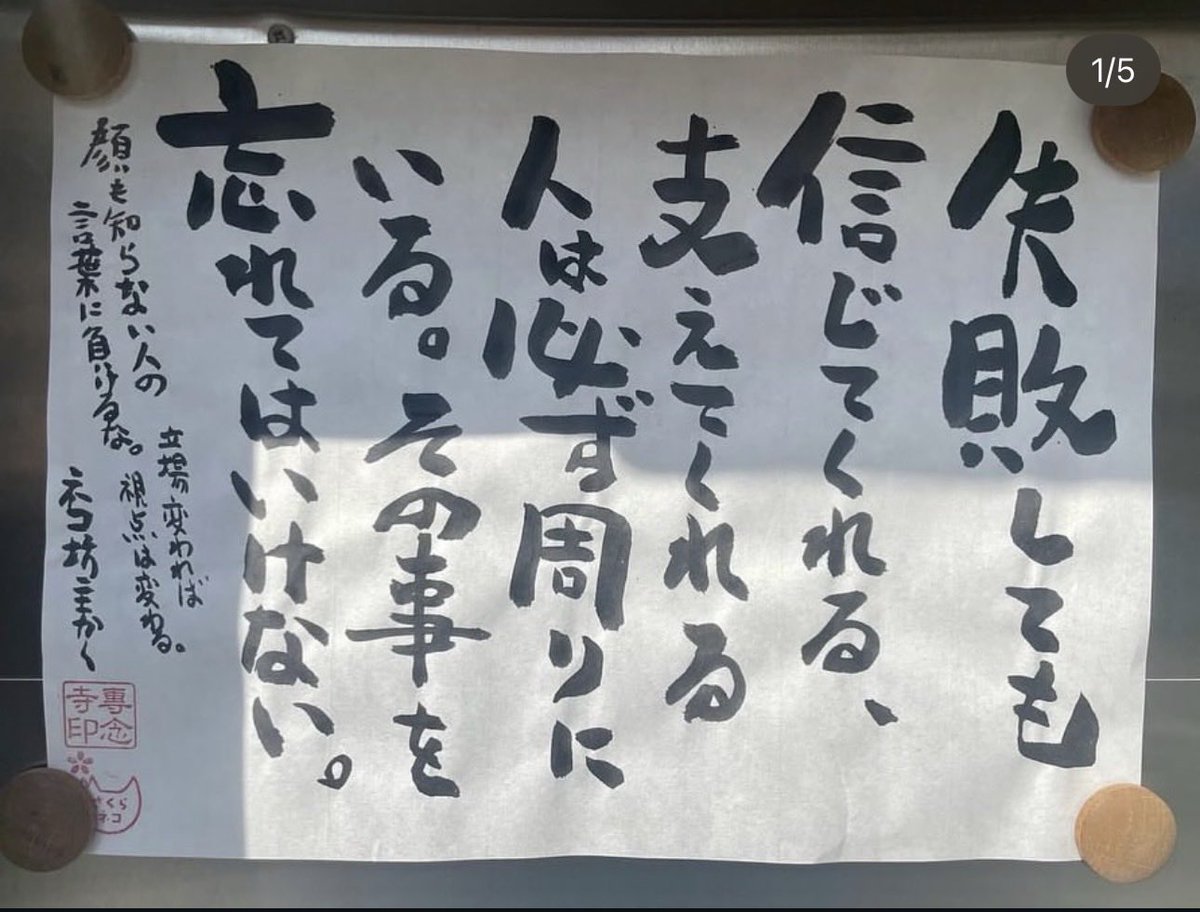 失敗しても
信じてくれる、
支えてくれる
人は必ず周りに
いる。その事を
忘れてはいけない。
顔も知らない人の
言葉に負けるな。
立場変わわれば
視点は変わる。
ネコ坊主かく
專念
寺印
さくら
ネコ
1/5